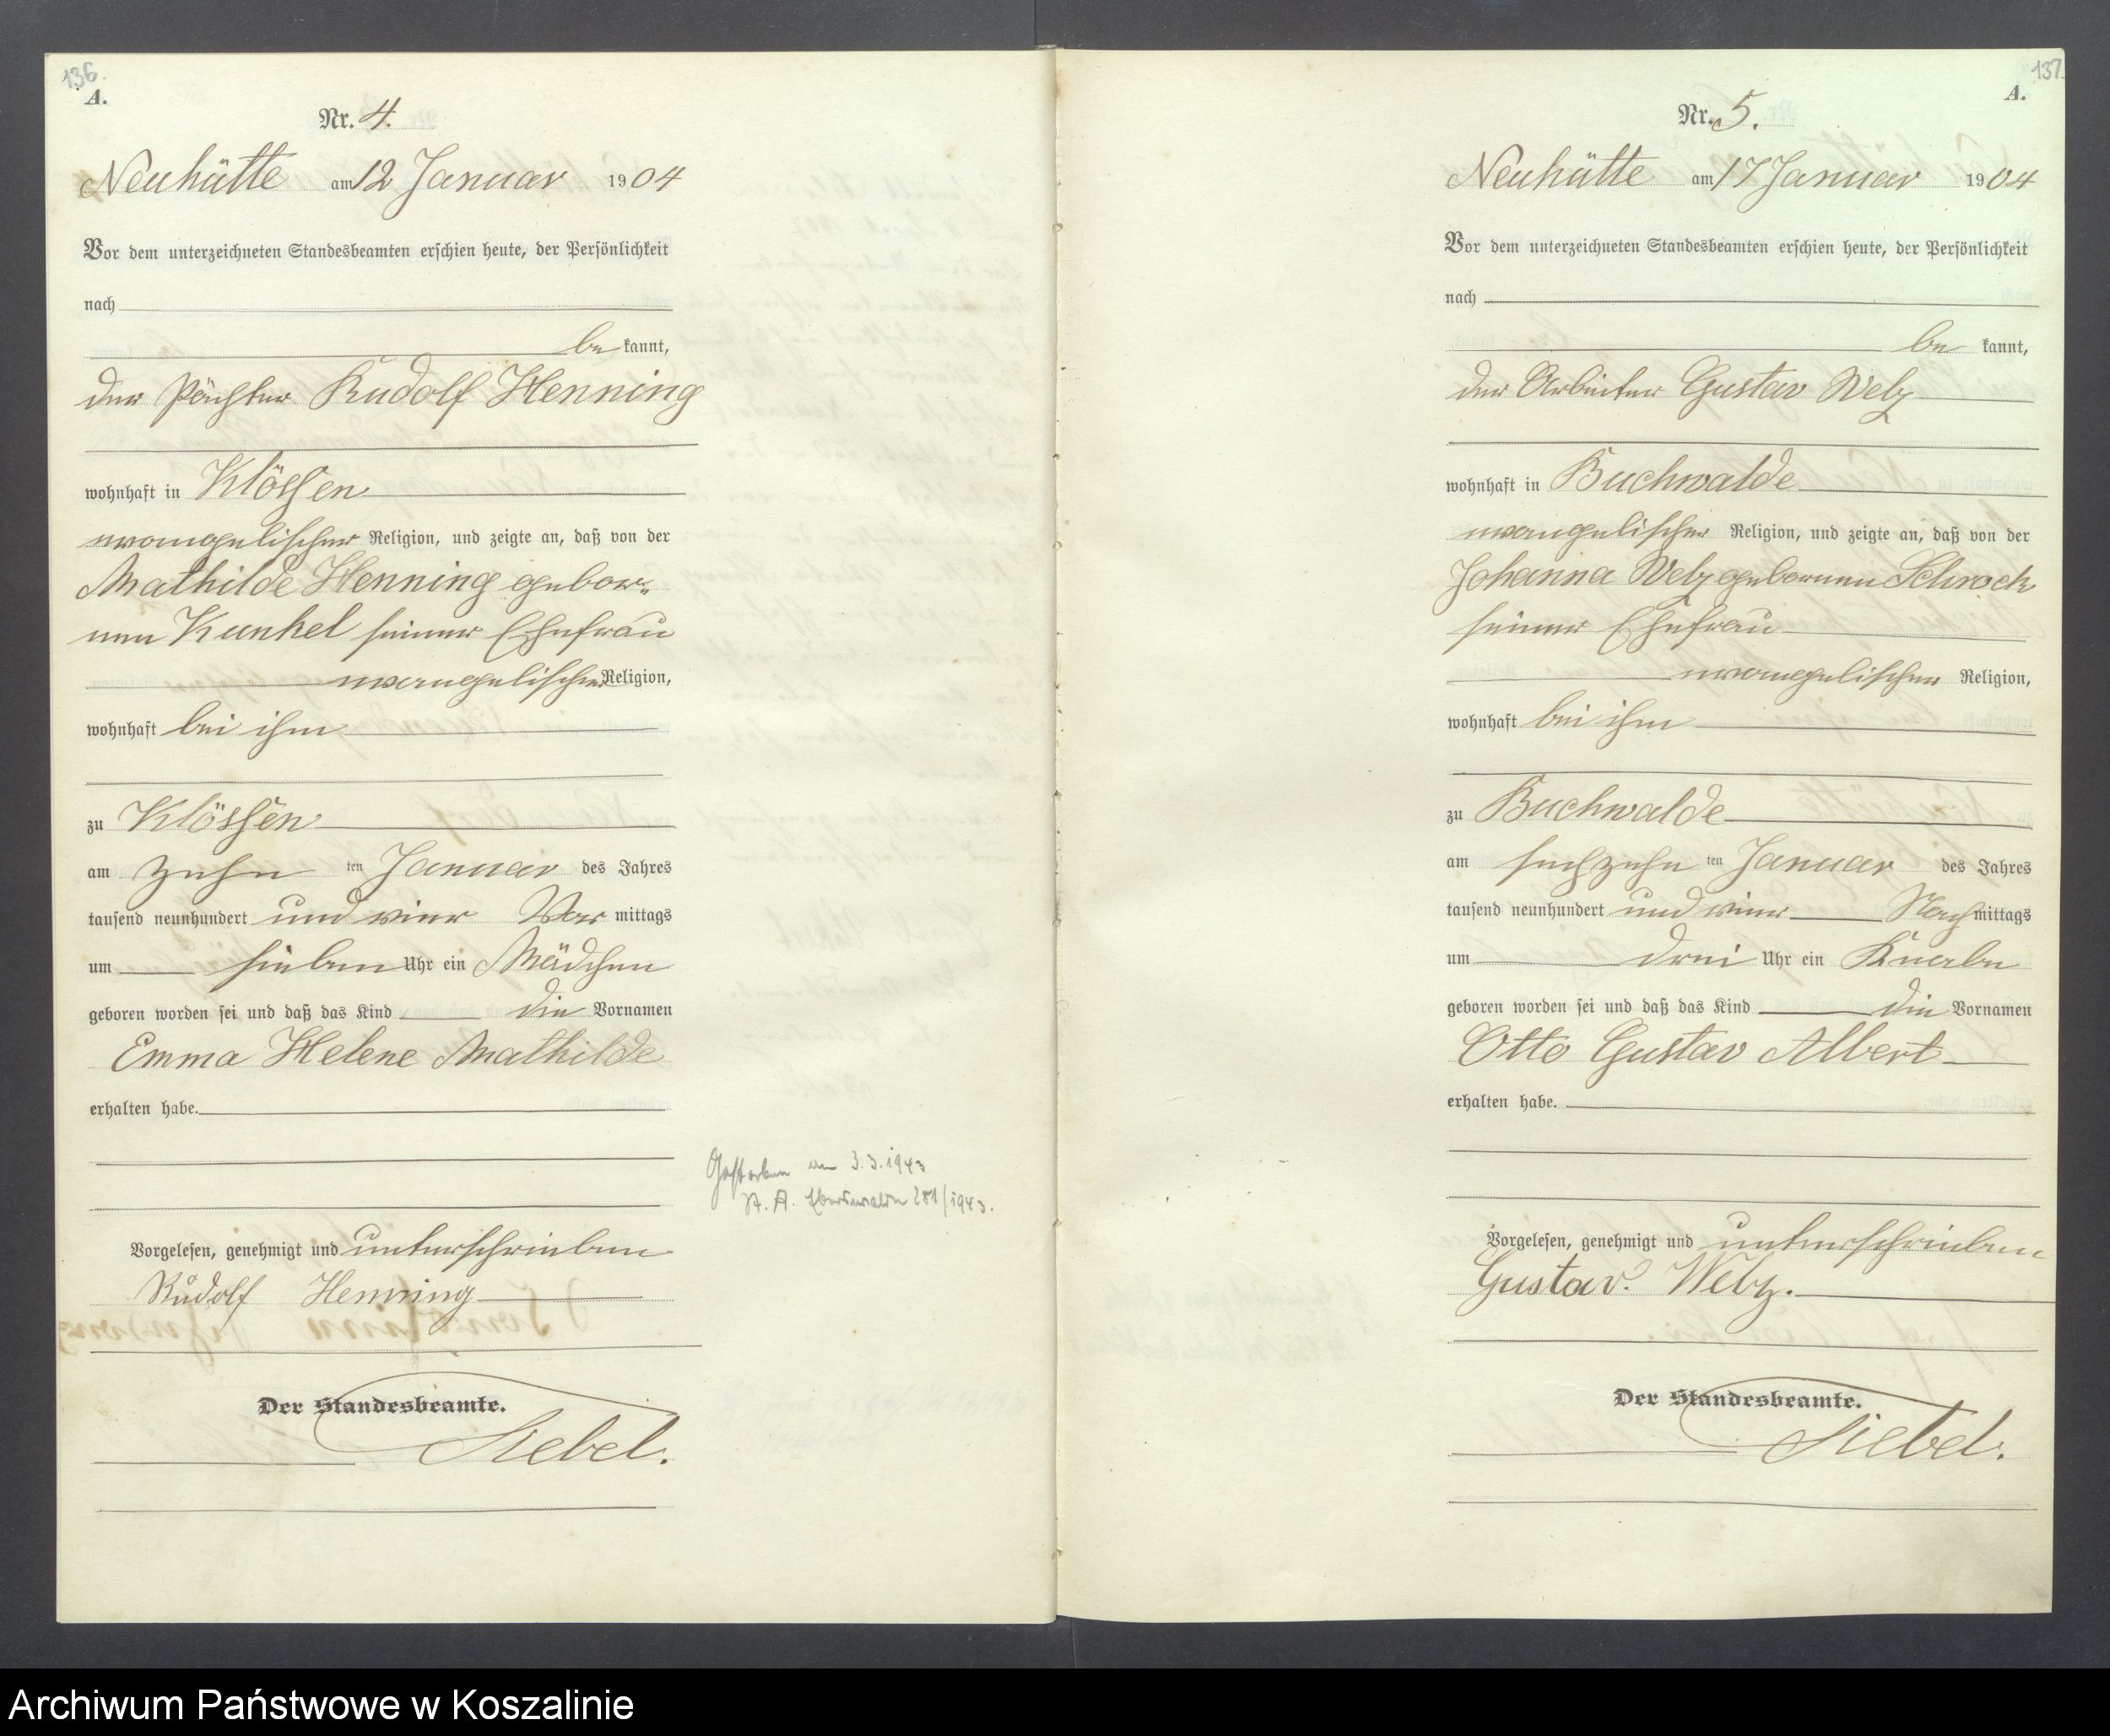 136.
A.
Nr. 4.
Neuhütte am 12 Januar 1904
Vor dem unterzeichneten Standesbeamten erschien heute, der Persönlichkeit
nach
be kannt,
der Pächter Rudolf Henning
wohnhaft in Klössen
evangelischer Religion, und zeigte an, daß von der
Mathilde Henning gebor-
nen Kunkel seiner Ehefrau
evangelischer Religion,
wohnhaft bei ihm
zu Klössen
am zehn ten Januar des Jahres
tausend neunhundert und vier Vor mittags
um sieben Uhr ein Mädchen
geboren worden sei und daß das Kind die Vornamen
Emma Helene Mathilde
erhalten habe.
Vorgelesen, genehmigt und unterschrieben
Rudolf Henning
Der Standesbeamte.
Siebel.
Gestorben am 3.3.1943
St. A. Eberswalde 281/1943.
137.
A.
Nr. 5.
Neuhütte am 17 Januar 1904
Vor dem unterzeichneten Standesbeamten erschien heute, der Persönlichkeit
nach
be kannt,
der Arbeiter Gustav Welz
wohnhaft in Buchwalde
evangelischer Religion, und zeigte an, daß von der
Johanna Welz geborenen Schrock
seiner Ehefrau
evangelischer Religion,
wohnhaft bei ihm
zu Buchwalde
am sechzehn ten Januar des Jahres
tausend neunhundert und vier Nach mittags
um drei Uhr ein Knabe
geboren worden sei und daß das Kind die Vornamen
Otto Gustav Albert
erhalten habe.
Vorgelesen, genehmigt und unterschrieben
Gustav. Welz.
Der Standesbeamte.
Siebel.
Archiwum Państwowe w Koszalinie